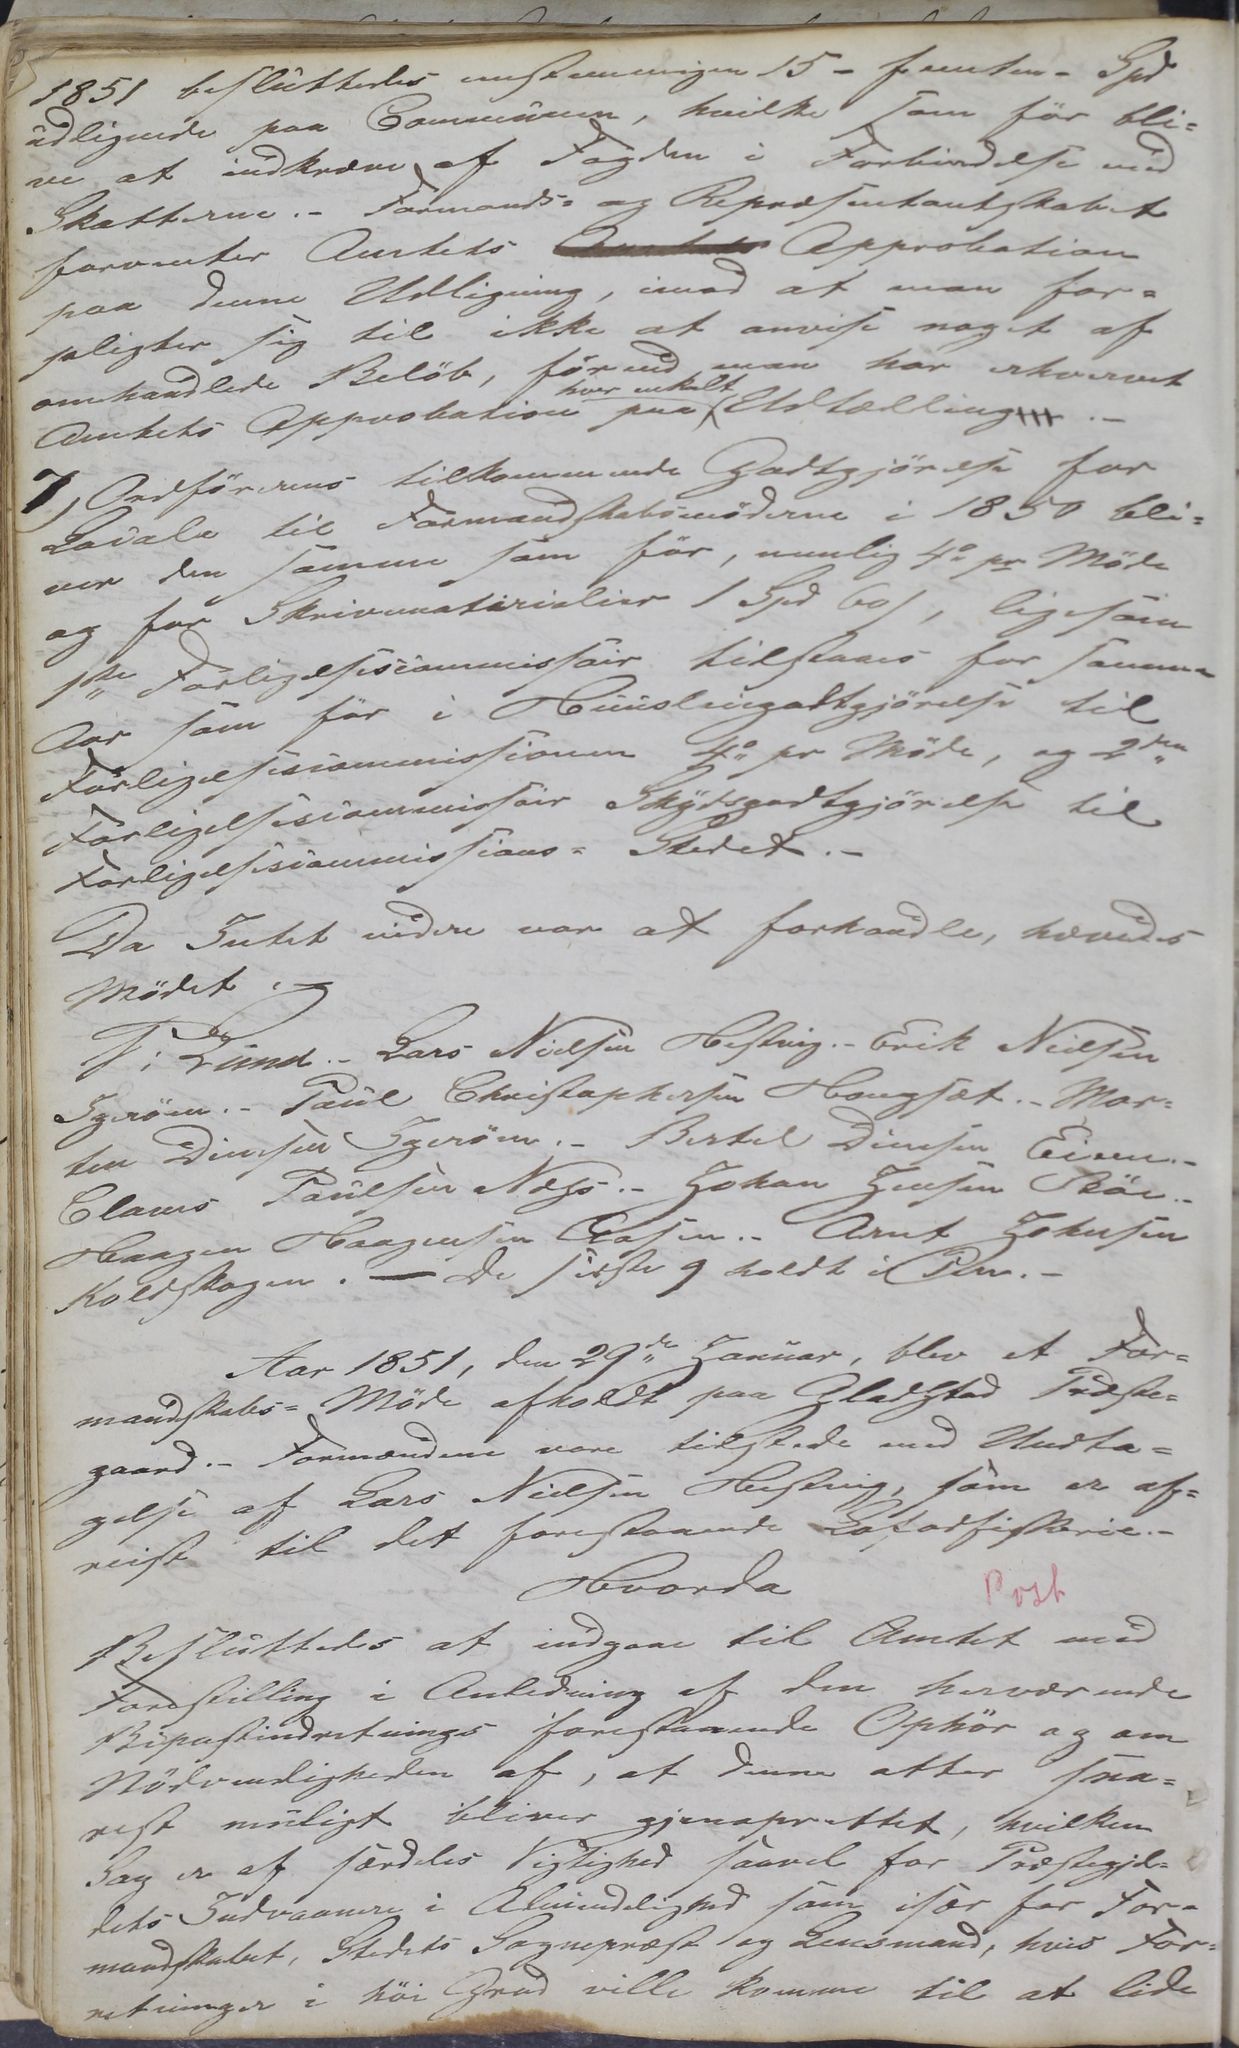 1851 besluttedes eenstemmigen 15 - femten - Spd
udlignede paa Communen, hvilke som før bli=
ve at indkræve af Fogden i Forbindelse med
Skatterne. - Formands= og Repræsentantskabet
forventer Amtets Approbation
paa denne Udligning, imod at man for=
pligter sig til ikke at anvise noget af
omhandlede Beløb, førend man har erhvervet
hver enkelt
Amtets Approbation paa Udtælling . -
7, Ordførerens tilkommende Godtgjørelse for
Locale til Formandskabsmøderne i 1850 bli=
ver den samme som før, nemlig 4 pr Møde
og for Skrivematerialier 1 Spd 60 s, ligesom
1ste Forligelsescommissair tilstaaes for samme
Aar som før i Huusleiegodtgjørelse til
Forligelsescommissionen 4 pr Møde, og 2den
Forligelsescommissair Skydsgodtgjørelse til
Forligelsescommissions= Stedet. -
Da Intet videre var at forhandle, hævedes
Mødet
F: Lund. - Lars Nielsen Hestvig. - Erik Nielsen
Igerøen. - Paul Christophersen Hongsæt. - Mor=
ten Dinesen Igerøen. - Bertel Dinesen Eien. -
Claus Paulsen Næss. - Johan Jensen -
Haagen Haagensen Aasen. - Arnt Johnsen
Koldskogen. - De sidste 9 holdt i Pen. -
Aar 1851, den 29de Januar, blev et For=
mandskabs= Møde afholdt paa Gladstad Præste=
gaard. - Formændene vare tilstede med Undta=
gelse af Lars Nielsen Hestvig, som er af=
reist til det forestaaende Lofodfiskerie. -
Hvorda
Post
Besluttedes at indgaae til Amtet med
Forestilling i Anledning af den herværende
Bipostindretnings forestaaende Ophør og om
Nødvendigheden af, at denne atter sna=
rest muligt bliver gjenoprettet, hvilken
Sag er af særdeles Vigtighed saavel for Præstegjel=
dets Indvaanere i Almindelighed som især for For=
mandskabet, Stedets Sognepræst og Lensmand, hvis For=
retninger i høi Grad ville komme til at lide